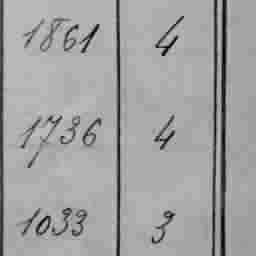 1861 4
1736 4
1033 3